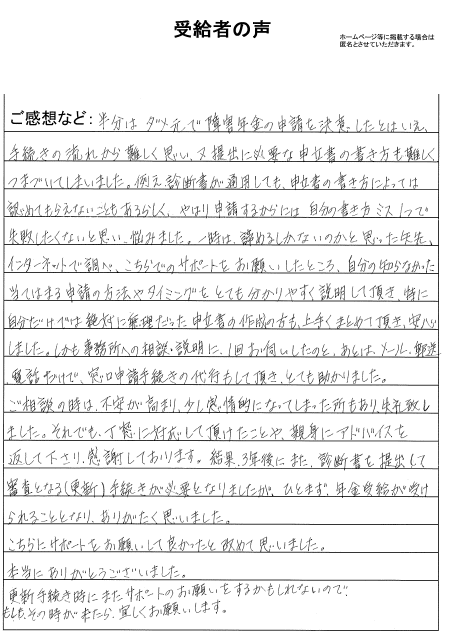 受給者の声
ホームページ等に掲載する場合は
匿名とさせていただきます。
ご感想など：半分はダメ元で障害年金の申請を決意したとはいえ、
手続きの流れから難しく思い、又提出に必要な申立書の書き方も難しく
つまづいてしまいました。例え、診断書が通用しても、申立書の書き方によっては
認めてもらえないこともあるらしく、やはり申請するからには自分の書き方ミス1つで
失敗したくないと思い、悩みました。一時は、諦めるしかないのかと思った矢先、
インターネットで調べ、こちらでのサポートをお願いしたところ、自分の知らなかった
当てはまる申請の方法やタイミングをとても分かりやすく説明して頂き、特に
自分だけでは絶対に無理だった申立書の作成の方も、上手くまとめて頂き、安心
しました。しかも事務所への相談・説明に、1回お伺いしたのと、あとは、メール、郵送、
電話だけで、窓口申請手続きの代行もして頂き、とても助かりました。
ご相談の時は、不安が高まり、少し感情的になってしまった所もあり、失礼致し
ました。それでも、丁寧に対応して頂けたことや、親身にアドバイスを
返して下さり、感謝しております。結果、3年後にまた、診断書を提出して
審査となる(更新)手続きが必要となりましたが、ひとまず、年金受給が受け
られることとなり、ありがたく思いました。
こちらにサポートをお願いして良かったと改めて思いました。
本当にありがとうございました。
更新手続き時にまたサポートのお願いをするかもしれないので
もしも、その時が来たら、宜しくお願いします。